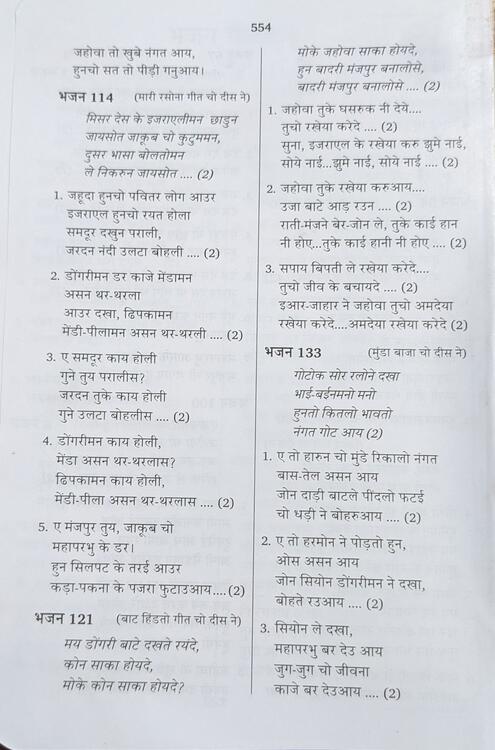 554
जहोवा तो खुबे नंगत आय,
हुनचो सत तो पीड़ी गनुआय।
भजन 114 (मारी रसोना गीत चो दीस ने)
मिसर देस के इजराएलीमन छाडुन
जायसोत जाकूब चो कुटुममन,
दुसर भासा बोलतोमन
ले निकरुन जायसोत .... (2)
1. जहूदा हुनचो पवितर लोग आउर
इजराएल हुनचो रयत होला
समदूर दखुन पराली,
जरदन नंदी उलटा बोहली .... (2)
2. डोंगरीमन डर काजे मेंडामन
असन थर-थरला
आउर दखा, ढिपकामन
मेंडी-पीलामन असन थर-थरली .... (2)
3. ए समदूर काय होली
गुने तुय परालीस?
जरदन तुके काय होली
गुने उलटा बोहलीस .... (2)
4. डोंगरीमन काय होली,
मेंडा असन थर-थरलास?
ढिपकामन काय होली,
मेंडी-पीला असन थर-थरलास .... (2)
5. ए मंजपुर तुय, जाकूब चो
महापरभु के डर।
हुन सिलपट के तरई आउर
कड़ा-पकना के पजरा फुटाउआय....(2)
भजन 121 (बाट हिंडतो गीत चो दीस ने)
मय डोंगरी बाटे दखते रयंदे,
कोन साका होयदे,
मोके कोन साका होयदे?
मोके जहोवा साका होयदे,
हुन बादरी मंजपुर बनालोसे,
बादरी मंजपुर बनालोसे .... (2)
1. जहोवा तुके घसरुक नी देये....
तुचो रखेया करेदे .... (2)
सुना, इजराएल के रखेया करु झुमे नाई,
सोये नाई...झुमे नाई, सोये नाई .... (2)
2. जहोवा तुके रखेया करुआय....
उजा बाटे आड़ रउन .... (2)
राती-मंजने बेर-जोन ले, तुके काई हान
नी होए...तुके काई हानी नी होए .... (2)
3. सपाय बिपती ले रखेया करेदे....
तुचो जीव के बचायदे .... (2)
इआर-जाहार ने जहोवा तुचो अमदेया
रखेया करेदे....अमदेया रखेया करेदे (2)
भजन 133 (मुंडा बाजा चो दीस ने)
गोटोक सोर रलोने दखा
भाई-बईनमनो मनो
हुनतो कितलो भावतो
नंगत गोट आय (2)
1. ए तो हारुन चो मुंडे रिकालो नंगत
बास-तेल असन आय
जोन दाड़ी बाटले पींदलो फटई
चो धड़ी ने बोहरुआय .... (2)
2. ए तो हरमोन ने पोड़तो हुन,
ओस असन आय
जोन सियोन डोंगरीमन ने दखा,
बोहते रउआय .... (2)
3. सियोन ले दखा,
महापरभु बर देउ आय
जुग-जुग चो जीवना
काजे बर देउआय .... (2)